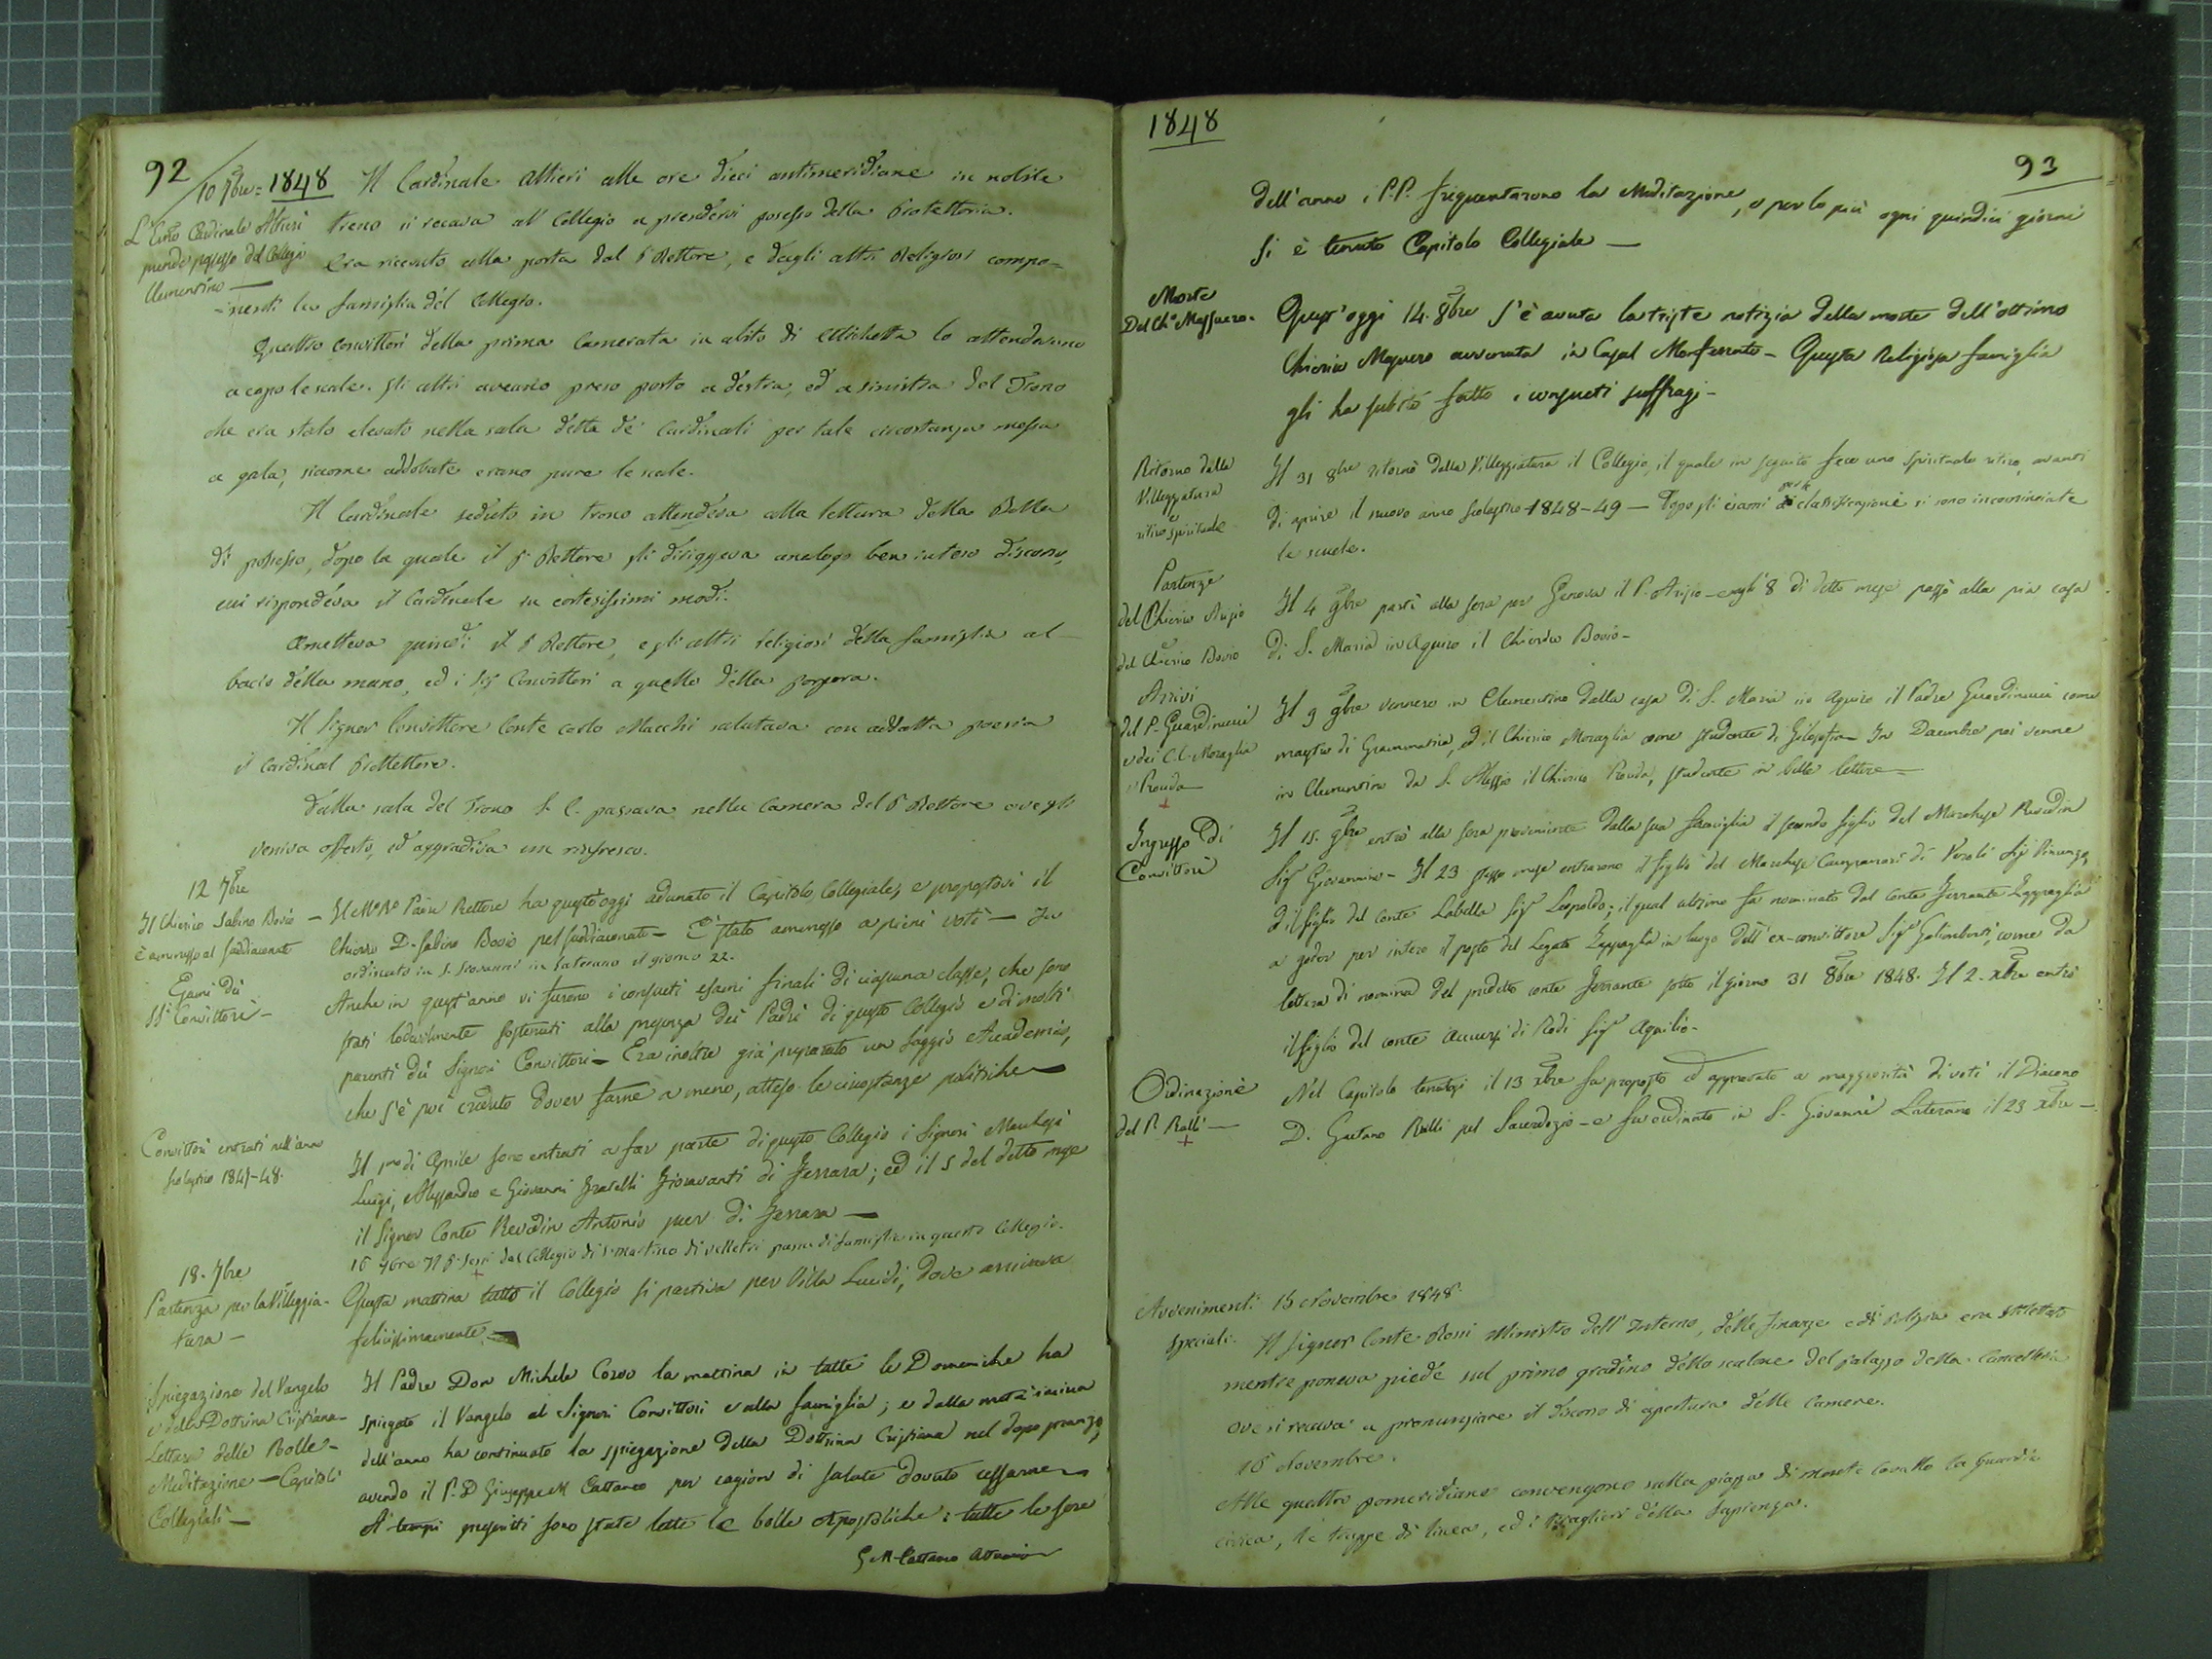 92
10 7bre = 1848
L'Emo Cardinale Altieri
prende possesso del Collegio
Clementino —
Il Cardinale Altieri alle ore dieci antimeridiane in nobile
treno si recava al Collegio a prendervi possesso della Protettoria.
Era ricevuto alla porta dal P. Rettore, e dagli altri Religiosi compo=
=nenti la famiglia del Collegio.
Quattro convittori della prima Camerata in abito di etichetta lo attendevano
a capo le scale. Gli altri aveano preso posto a destra, ed a sinistra del Trono
che era stato elevato nella sala detta de' Cardinali per tale circostanza messa
a gala, siccome addobbate erano pure le scale.
Il Cardinale seduto in trono attendeva alla lettura della Bolla
di possesso, dopo la quale il P. Rettore gli dirigeva analogo ben inteso discorso,
cui rispondeva il Cardinale in cortesissimi modi.
Ammetteva quindi il P. Rettore, e gli altri religiosi della famiglia al
bacio della mano, ed i Sigi Convittori a quello della porpora.
Il Signor Convittore Conte Carlo Macchi salutava con addatta poesia
il Cardinal Protettore.
Dalla sala del Trono S. E. passava nella Camera del P. Rettore ove gli
veniva offerto, ed aggradiva un rinfresco.
12 7bre
Il Chierico Sabino Bovio
è ammesso al Suddiaconato
Il M.o R.o Padre Rettore ha quest'oggi adunato il Capitolo Collegiale, e propostovi il
Chierico D. Sabino Bovio pel suddiaconato — È stato ammesso a pieni voti — Fu
ordinato in S. Giovanni in Laterano il giorno 22.
Esami dei
SS.i Convittori —
Anche in quest'anno vi furono i consueti esami finali di ciascuna classe, che sono
stati lodevolmente sostenuti alla presenza dei Padri di questo Collegio e di molti
parenti dei Signori Convittori — Era inoltre già preparato un saggio Accademico,
che s'è poi creduto dover farne a meno, atteso le circostanze politiche —
Convittori entrati nell'anno
scolastico 1847-48.
Il pmo di Aprile sono entrati a far parte di questo Collegio i Signori Marchesi
Luigi, Alessandro e Giovanni Fratelli Fioravanti di Ferrara; ed il 5 del detto mese
il Signor Conte Revedin Antonio pur di Ferrara —
16 7bre Il P. Serri dal Collegio di S. Martino di Velletri passa di famiglia in questo Collegio.
18. 7bre
Partenza per la Villeggia-
tura —
Questa mattina tutto il Collegio si partiva per Villa Lucidi, dove arrivava
felicissimamente —
Spiegazione del Vangelo
e della Dottrina Cristiana —
Lettura delle Bolle —
Meditazione — Capitoli
Collegiali —
Il Padre Don Michele Corvo la mattina in tutte le Domeniche ha
spiegato il Vangelo ai Signori Convittori e alla famiglia; e dalla metà circa
dell'anno ha continuato la spiegazione della Dottrina Cristiana nel dopo pranzo,
avendo il P. D. Giuseppe M. Cattaneo per cagion di salute dovuto cessarne —
A' tempi prescritti sono state lette le bolle Apostoliche: tutte le sere
G. M. Cattaneo Attuario
1848
93
dell'anno i P.P. frequentarono la Meditazione, e per lo più ogni quindici giorni
si è tenuto Capitolo Collegiale —
Morte
Del Ch.o Massuero.
Quest'oggi 14. 8bre s'è avuta la triste notizia della morte dell'ottimo
Chierico Massuero avvenuta in Casal Monferrato — Questa Religiosa famiglia
gli ha subito fatto i consueti suffragi —
Ritorno dalla
Villeggiatura
e
ritiro spirituale
Il 31 8bre ritornò dalla Villeggiatura il Collegio, il quale in seguito fece uno spirituale ritiro, avanti
di aprire il nuovo anno scolastico 1848-49 — Dopo gli esami per la classificazione si sono incominciate
le scuole.
Partenze
del Chierico Arisio
e
del Chierico Bovio
Il 4 9bre partì alla sera per Genova il P. Arisio — e agli 8 di detto mese passò alla pia casa
di S. Maria in Aquiro il Chierico Bovio —
Arrivi
del P. Guardinucci
e dei C.C. Moraglia
e Rouda —
Il 9 9bre vennero in Clementino dalla casa di S. Maria in Aquiro il Padre Guardinucci come
maestro di Grammatica, ed il Chierico Moraglia come studente di Filosofia — In Dicembre poi venne
in Clementino da S. Alessio il Chierico Rouda, studente in belle lettere =
Ingresso Di
Convittori
Il 15. 9bre entrò alla sera proveniente dalla sua famiglia il secondo figlio del Marchese Revedin
Sigr Giovannino — Il 23 stesso mese entrarono il figlio del Marchese Campanari di Veroli Sigr Vincenzo,
ed il figlio del Conte Labella Sigr Leopoldo; il qual ultimo fu nominato dal conte Ferrante Zappaglia
a goder per intero il posto del Legato Zappaglia in luogo dell'ex-convittore Sigr Galimberti, come da
lettera di nomina del predetto conte Ferrante sotto il giorno 31 8bre 1848. Il 2. xbre entrò
il figlio del conte di Rodi Sigr Aquilio —
Ordinazione
del P. Ralli —
Nel Capitolo tenutosi il 13 xbre fu proposto ed approvato a maggiorità di voti il Diacono
D. Gaetano Ralli pel Sacerdozio — e fu ordinato in S. Giovanni Laterano il 23 xbre —
Avvenimenti
speciali.
15 Novembre 1848.
Il Signor Conte Rossi Ministro dell'Interno, delle finanze e di Polizia era stilettato
mentre poneva piede sul primo gradino dello scalone del palazzo della Cancelleria
ove si recava a pronunziare il discorso di apertura delle Camere.
16 Novembre.
Alle quattro pomeridiane convengono sulla piazza di Monte Cavallo la Guardia
civica, le truppe di linea, ed i bersaglieri della Sapienza.